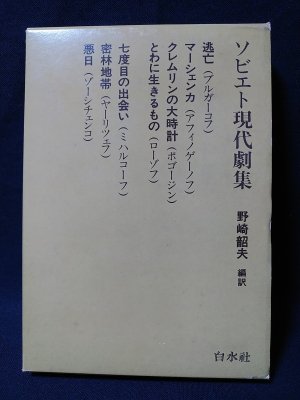 ソビエト現代劇集
野崎韶夫 編訳
逃亡(ブルガーコフ)
マーシェンカ(アフィノゲーノフ)
クレムリンの大時計(ポゴージン)
とわに生きるもの(ローゾフ)
七度目の出会い(ミハルコーフ)
密林地帯(ヤーリツェフ)
悪日(ゾーシチェンコ)
白水社